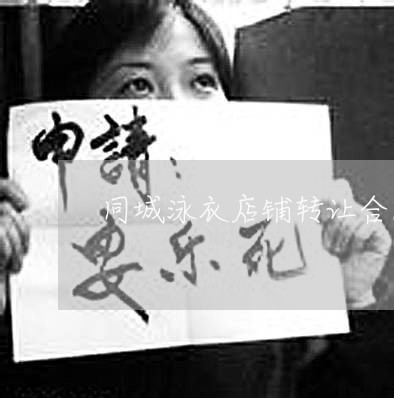 申請:
同城泳衣店铺转让合
安乐死